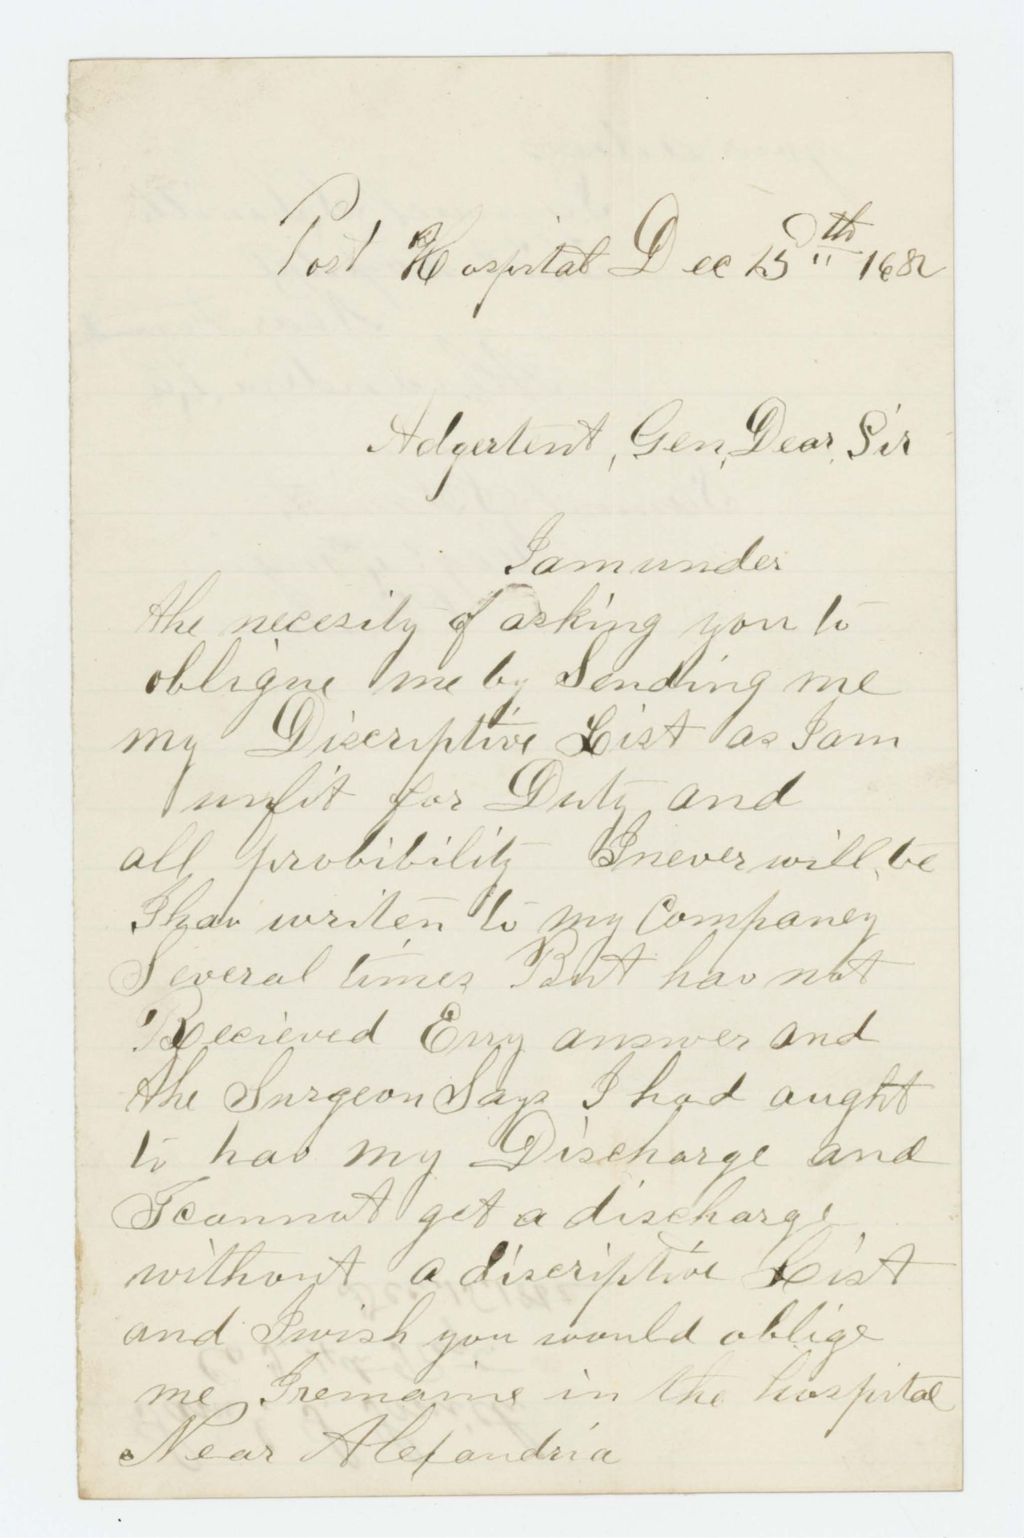 Post Hospital Dec 15th 1862
Adgertent, Gen, Dear, Sir
I am under
the necesity of asking you to
obligue me by Sending me
my Discriptive List as I am
unfit for Duty and
all probibility I never will, be
I hav writen to my Companey
Several times But hav not
Recieved Eny answer and
the Surgeon Says I had aught
to hav my Discharge and
I cannot get a discharge
without a discriptive List
and I wish you would oblige
me I remaine in the hospital
Near Alexandria